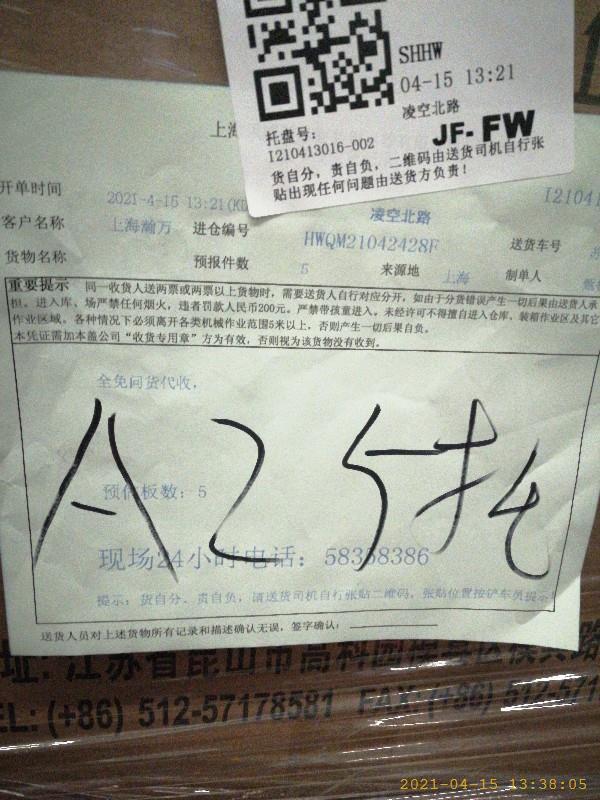 SHHW
04-15 13:21
凌空北路
托盘号:
JF-FW
I210413016-002
货自分，责自负，二维码由送货司机自行张
贴出现任何问题由送货方负责！
上海
开单时间 2021-4-15 13:21(KD
I21041
客户名称 上海瀚万 进仓编号 HWQM21042428F 凌空北路 送货车号
货物名称 预报件数 5 来源地 上海 制单人
重要提示 同一收货人送两票或两票以上货物时，需要送货人自行对应分开，如由于分货错误产生一切后果由送货人承
担。进入库、场严禁任何烟火，违者罚款人民币200元。严禁带孩童进入。未经许可不得擅自进入仓库、装箱作业区及其它
作业区域。各种情况下必须离开各类机械作业范围5米以上，否则产生一切后果自负。
本凭证需加本盖公司“收货专用章”方为有效，否则视为该货物没有收到。
全免问货代收，
A2 5托
预估板数：5
现场24小时电话：58358386
提示：货自分、责自负，请送货司机自行张贴二维码，张贴位置按铲车员提示!
送货人员对上述货物所有记录和描述确认无误，签字确认：
址: 江苏省昆山市高科园
EL: (+86) 512-57178581 FAX: (+86) 512-571
2021-04-15 13:38:05